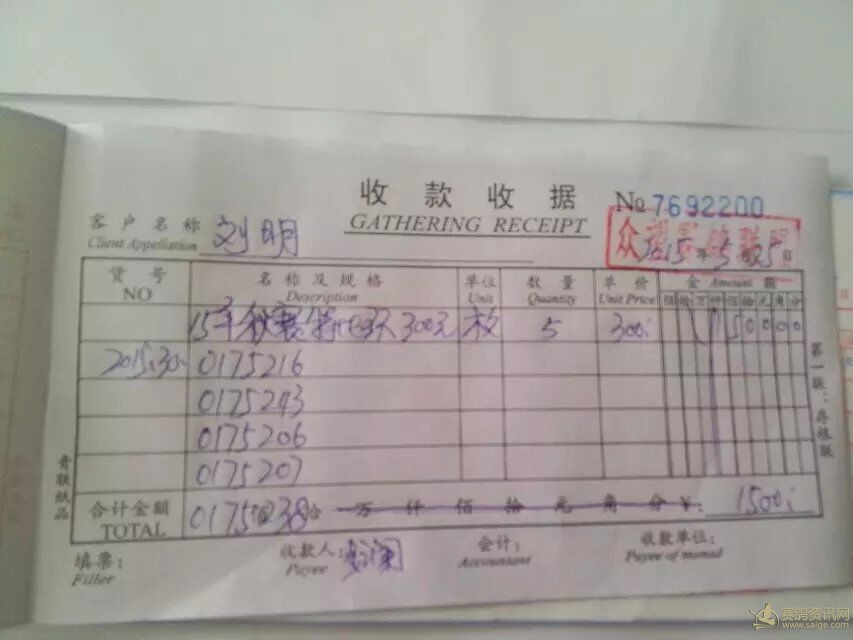 收款收据
GATHERING RECEIPT
№ 7692200
客户名称 刘明
Client Appellation
货号 名称及规格 单位 数量 单价 金 Amount 额
NO Description Unit Quantity Unit Price 佰 拾 万 仟 佰 拾 元 角 分
15年秋赛特 300元 枚 5 300 150000
2015.30. 0175216
0175243
0175206
0175207
合计金额 017538 万 仟 佰 拾 元 角 分 ¥: 1500
TOTAL
填票: 收款人: 会计: 收款单位:
Filler Payee Accountant Payee of monad
第一联:存根联
青联纸品
赛鸽资讯网
www.saige.com